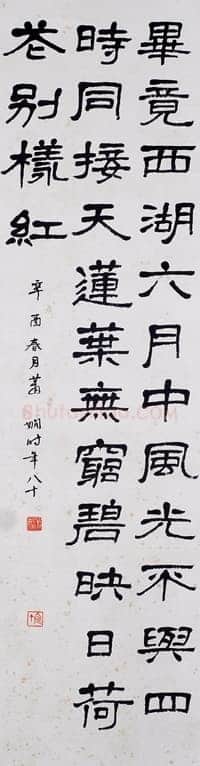 畢竟西湖六月中風光不與四
時同接天蓮葉無窮碧映日荷
花別樣紅
辛酉春月蕭嫻時年八十